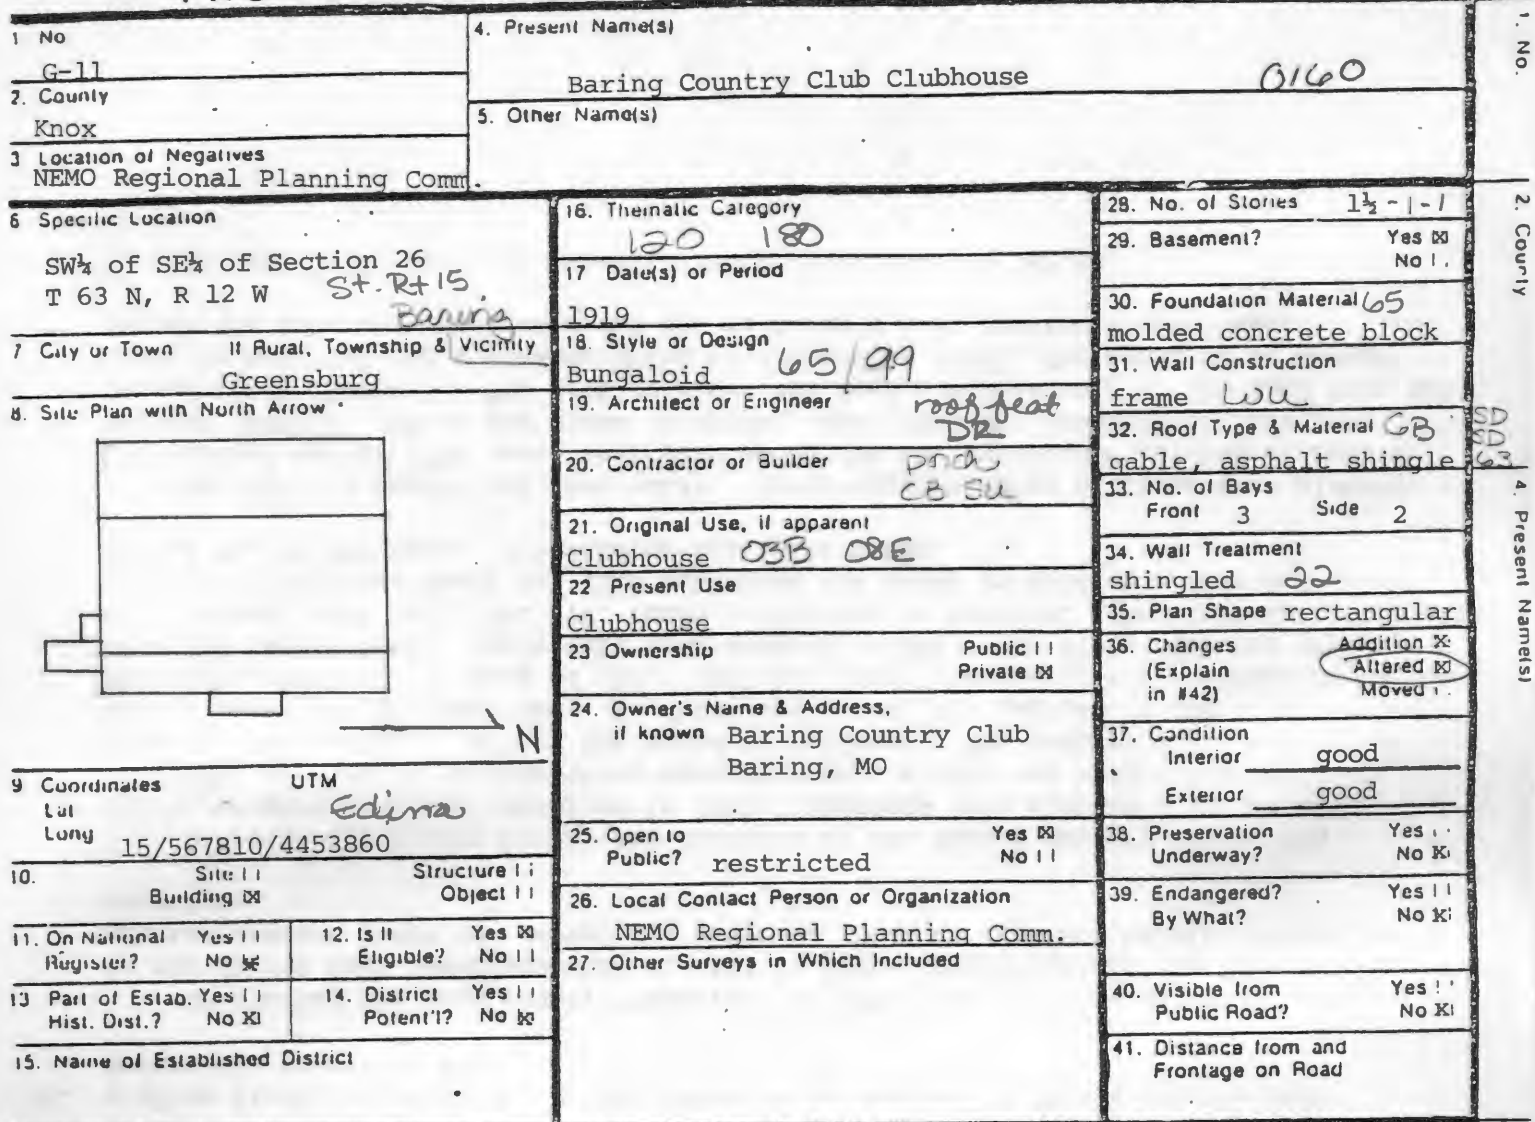 1 No
G-11
2. County
Knox
3 Location of Negatives
NEMO Regional Planning Comm.
4. Present Name(s)
Baring Country Club Clubhouse 0160
5. Other Name(s)
6 Specific Location
SW¼ of SE¼ of Section 26
T 63 N, R 12 W St. Rt 15
Baring
7 City or Town If Rural, Township & Vicinity
Greensburg
8. Site Plan with North Arrow
N
9 Coordinates UTM
Lat Edina
Long
15/567810/4453860
10. Site Structure
Building ☒ Object
11. On National Register? Yes No ☒
12. Is It Eligible? Yes ☒ No
13 Part of Estab. Hist. Dist.? Yes No ☒
14. District Potent'l? Yes No ☒
15. Name of Established District
16. Thematic Category
120 180
17 Date(s) or Period
1919
18. Style or Design 65/99
Bungaloid
19. Architect or Engineer roof feat
DR
20. Contractor or Builder prch
CB SU
21. Original Use, if apparent
Clubhouse 03B 08E
22 Present Use
Clubhouse
23 Ownership Public
Private ☒
24. Owner's Name & Address,
if known Baring Country Club
Baring, MO
25. Open to Yes ☒
Public? restricted No
26. Local Contact Person or Organization
NEMO Regional Planning Comm.
27. Other Surveys in Which Included
28. No. of Stories 1½-1-1
29. Basement? Yes ☒
No
30. Foundation Material 65
molded concrete block
31. Wall Construction
frame WU
32. Roof Type & Material GB SD
SD
gable, asphalt shingle 63
33. No. of Bays
Front 3 Side 2
34. Wall Treatment
shingled 22
35. Plan Shape rectangular
36. Changes Addition ☒
(Explain Altered ☒
in #42) Moved
37. Condition
Interior good
Exterior good
38. Preservation Yes
Underway? No ☒
39. Endangered? Yes
By What? No ☒
40. Visible from Yes
Public Road? No ☒
41. Distance from and
Frontage on Road
1. No.
2. County
4. Present Name(s)